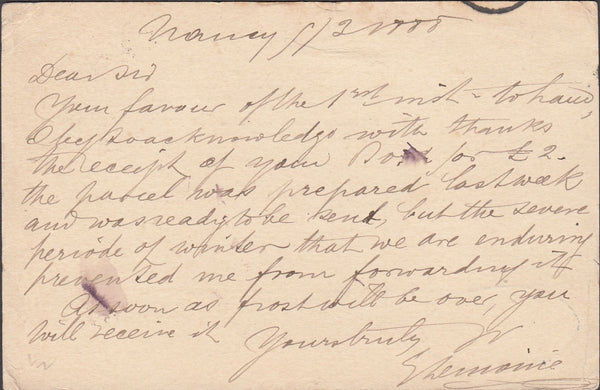 Nancy 5/2 1888
Dear Sir
Your favour of the 1rst inst - to hand,
I beg to acknowledge with thanks
the receipt of your for £ 2.
the parcel was prepared last week
and was ready to be send, but the severe
periode of winter that we are enduring
prevented me from forwarding it
As soon as frost will be over, you
will receive it Yours truly
V Lemoine